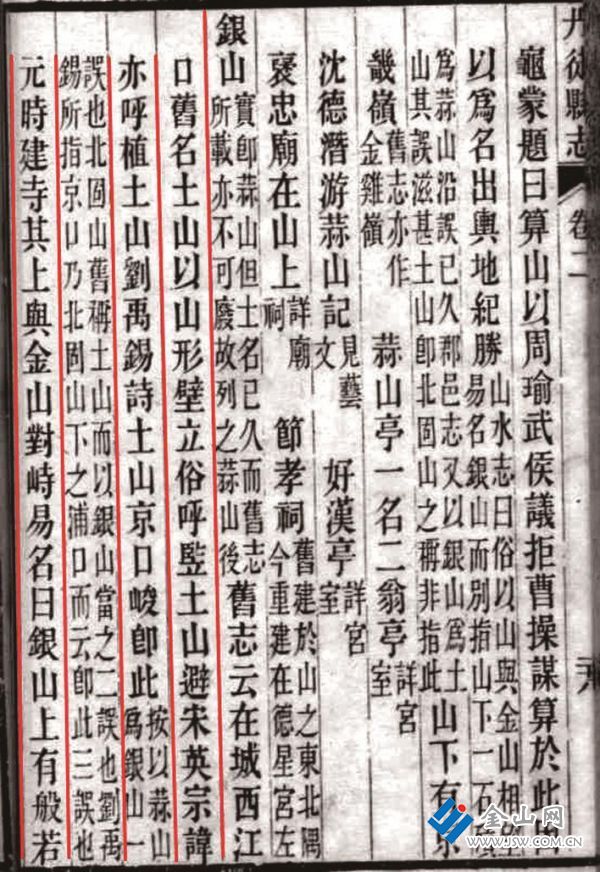 丹徒縣志 卷二
龜蒙題曰算山以周瑜武侯議拒曹操謀算於此
以爲名出輿地紀勝
山水志曰俗以山與金山相
易名銀山而別指山下一石
爲蒜山沿誤已久郡邑志又以銀山爲土
山其誤滋甚土山卽北固山之稱非指此
山下有京
畿嶺
舊志亦作
金雞嶺
蒜山亭一名二翁亭
詳宮
室
沈德潛游蒜山記
見藝
文
好漢亭
詳宮
室
褒忠廟在山上
詳廟
祠
節孝祠
舊建於山之東北隅
今重建在德星宮左
銀山
實卽蒜山但土名已久而舊志
所載亦不可廢故列之蒜山後
舊志云在城西江
口舊名土山以山形壁立俗呼竪土山避宋英宗諱
亦呼植土山劉禹錫詩土山京口峻卽此
按以蒜山
爲銀山一
誤也北固山舊稱土山而以銀山當之二誤也劉禹
錫所指京口乃北固山下之浦口而云卽此三誤也
元時建寺其上與金山對峙易名曰銀山上有般若
金山网
WWW.JSW.COM.CN